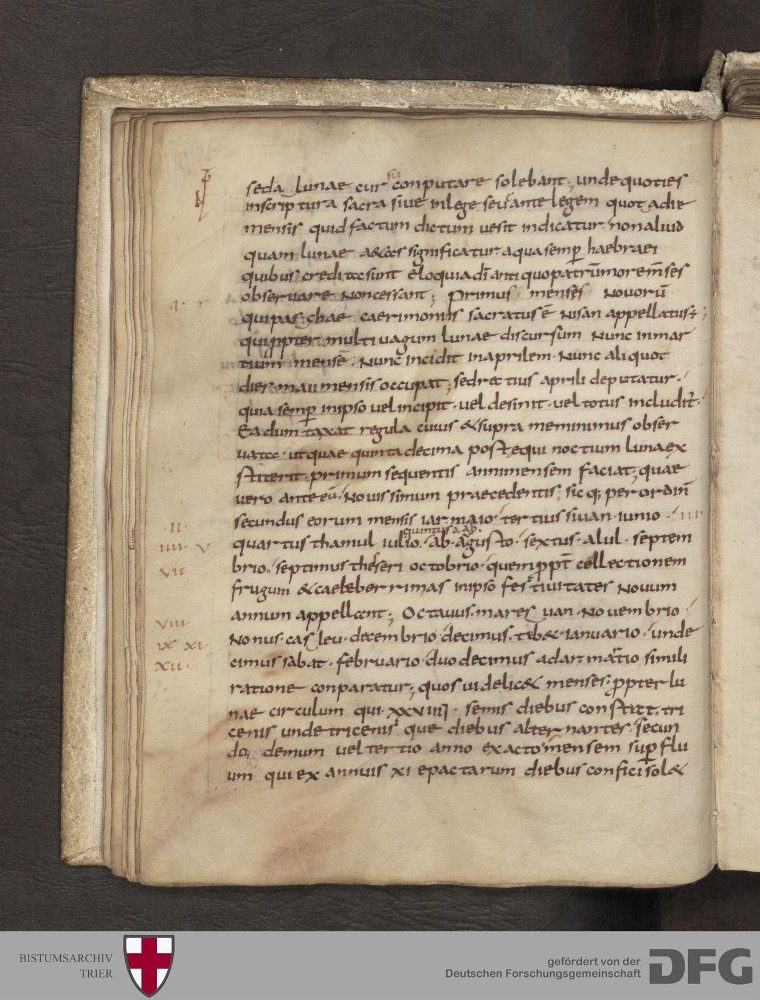 seda lunae cursu conputare solebant; unde quoties
inscriptura sacra siue inlege seu ante legem quotadie
mensis quid factum dictum uesit indicatur. non aliud
quam lunae significatur aqua semp̄ haebraei
quibus credita sunt eloquia dī antiquo patrū morem̄ses
obseruare non cessant; Primus menses nouorū
qui pas chae caerimoniis sacratus ē nisan appellatus;
qui ꝓpter multiuagum lunae discursum nunc inmar
tium mensē. Nunc incidit inaprilem. Nunc aliquot
dies maii mensis occupat; sed rectius aprili deputatur.
quia semp̄ inipso uel incipit. uel desinit. uel totus includit.
Ea dum taxat regula cuius & supra meminimus obser
uata. ut quae quinta decima post equi noctium lunaex
stiterit. primum sequentis anni mensem faciat; quae
uero ante eū. Nouissimum praecedentis; sicq; per ordin̄
II. secundus eorum mensis iar maio. tertius siuan. iunio. III
quintus aab
IIII. V quartus thamul iulio. ab. agusto. sextus. alul. septem
VII brio. septimus theseri octobrio. quem ꝓpt̄ collectionem
frugum & caeleberrimas inipso festiuitates nouum
annum appellant; Octauus. maresuan. Nouembrio.
VIII
IX XI. Nonus. casleu. decembrio decimus. teb&. ianuario. unde
XII. cimus sabat. februario. duodecimus adar. martio simili
ratione conparatur; quos uidelic& menses. ꝓpter lu
nae circulum qui. XXVIIII. semis diebus constat. tri
cenis unde tricenisque diebus alternantes. secun
do demum uel tertio anno exacto mensem sup̄flu
um qui ex annuis XI epactarum diebus confici sol&
BISTUMSARCHIV
TRIER
gefördert von der
Deutschen Forschungsgemeinschaft
DFG